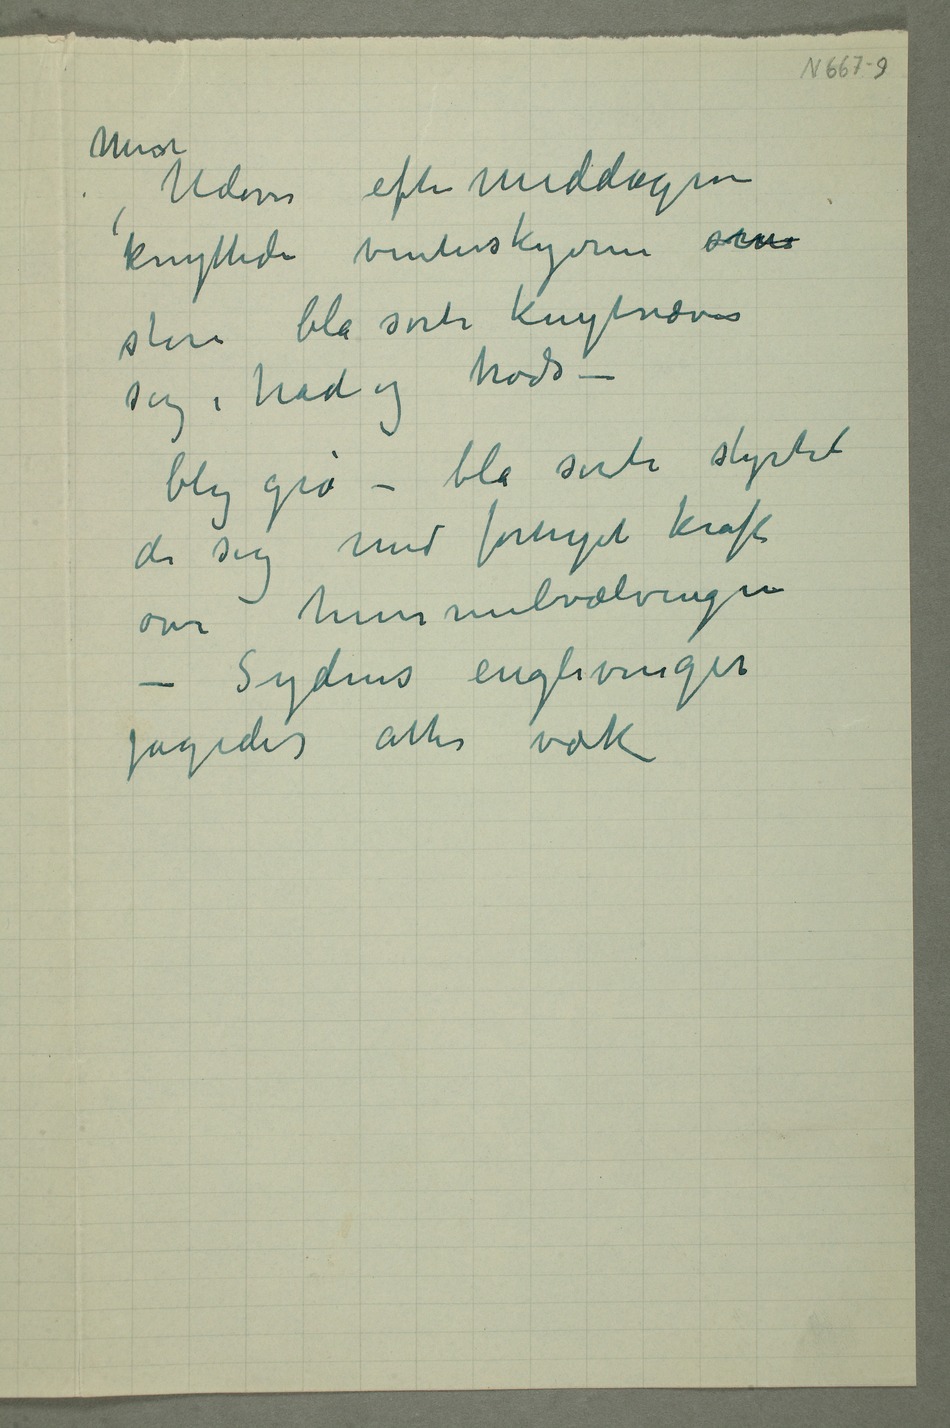 N 667-9
Udover eftermiddagen
knyttede vinterskyerne som
store blå sorte knytnæver
sig i had og trods –
blygrå – blå sorte styrtet
de sig med fornyet kraft
over himmelvælvingen
– Sydens englevinger
jagedes atter væk